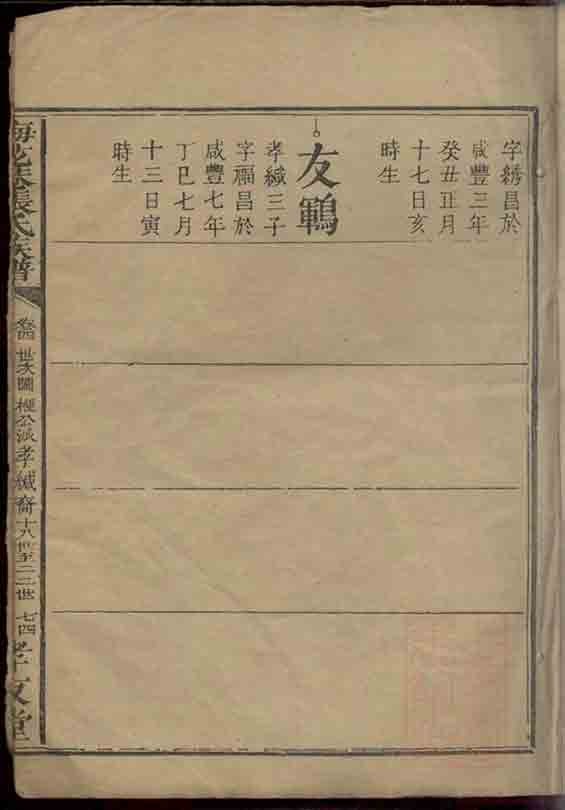 字綉昌於
咸豐三年
癸丑正月
十七日亥
時生
友鶤
孝緘三子
字福昌於
咸豐七年
丁巳七月
十三日寅
時生
張氏族譜
世次圖 公派孝緘裔十八世至二二世 七四
孝友堂